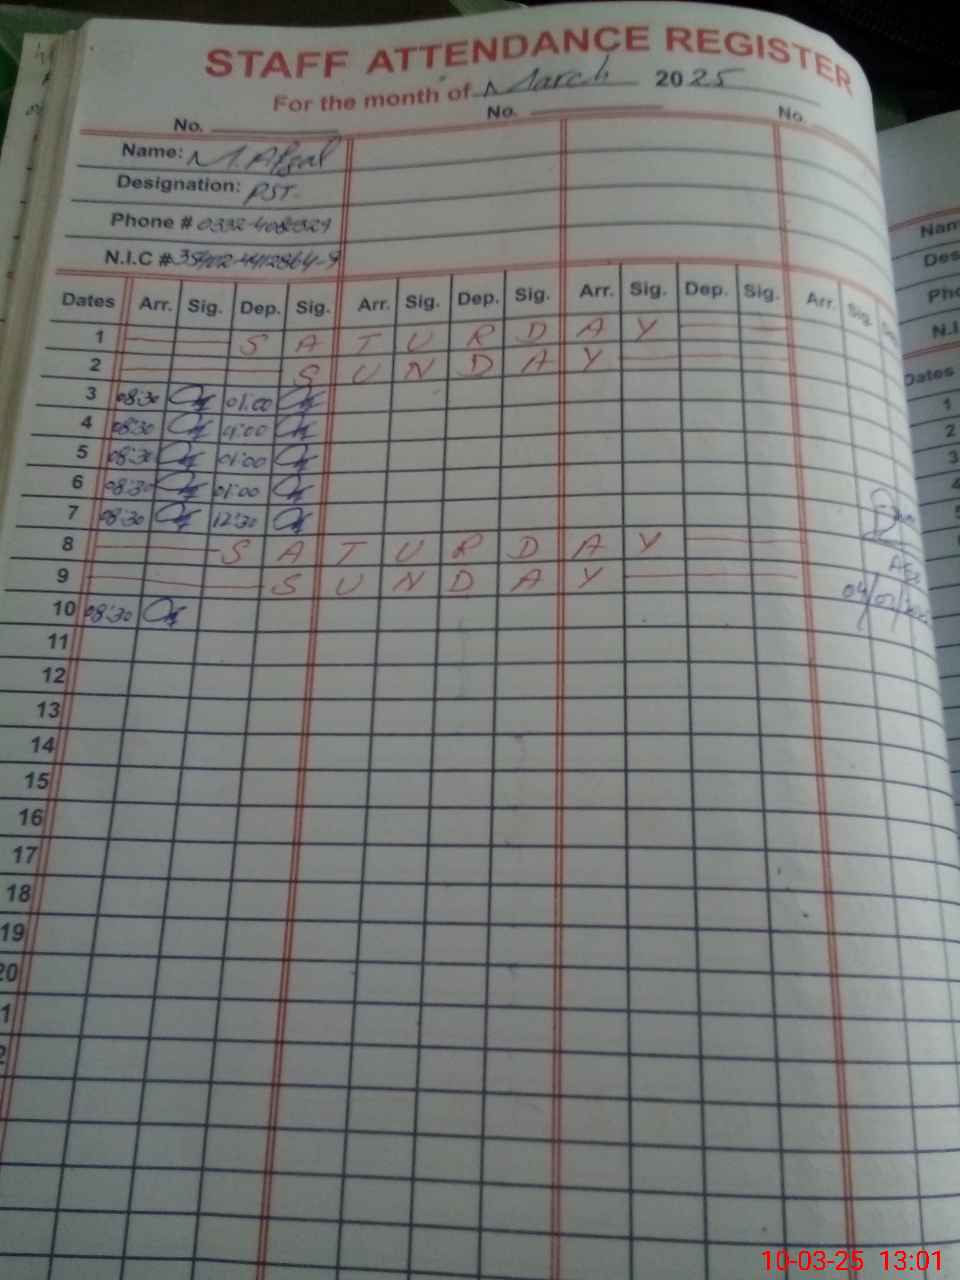 STAFF ATTENDANCE REGISTER
For the month of March 2025
No. No. No.
Name: M. Afzal
Designation: PST.
Phone #
N.I.C #
Dates Arr. Sig. Dep. Sig. Arr. Sig. Dep. Sig. Arr. Sig. Dep. Sig. Arr. Sig.
1 SATURDAY
2 SUNDAY
3 08:30 01:00
4 08:30 01:00
5 08:30 01:00
6 08:30 01:00
7 08:30 12:30
8 SATURDAY
9 SUNDAY
10 08:30
11
12
13
14
15
16
17
18
19
20
Nam
Des
Pho
N.I.
Dates
1
2
3
4
5
10-03-25 13:01